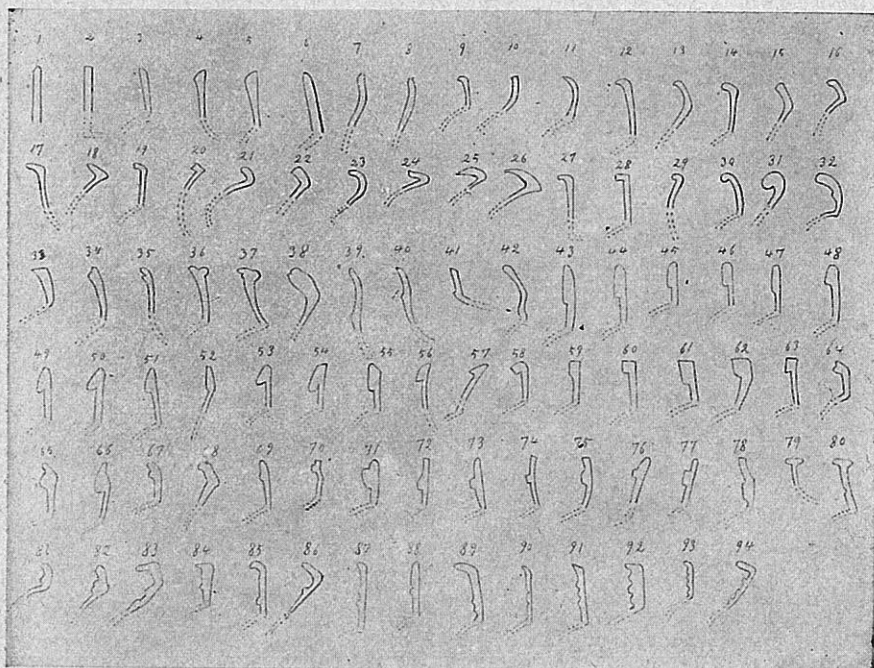 1 2 3 4 5 6 7 8 9 10 11 12 13 14 15 16
17 18 19 20 21 22 23 24 25 26 27 28 29 30 31 32
33 34 35 36 37 38 39 40 41 42 43 44 45 46 47 48
49 50 51 52 53 54 55 56 57 58 59 60 61 62 63 64
65 66 67 68 69 70 71 72 73 74 75 76 77 78 79 80
81 82 83 84 85 86 87 88 89 90 91 92 93 94